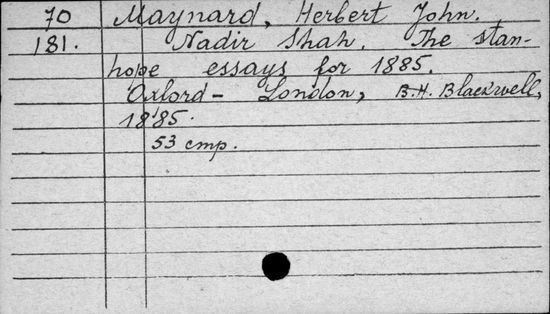 70 Maynard, Herbert John.
181. Nadir Shah. The stan-
hope essays for 1885.
Oxlord - London, B.H. Blackwell,
1885.
53 cmp.